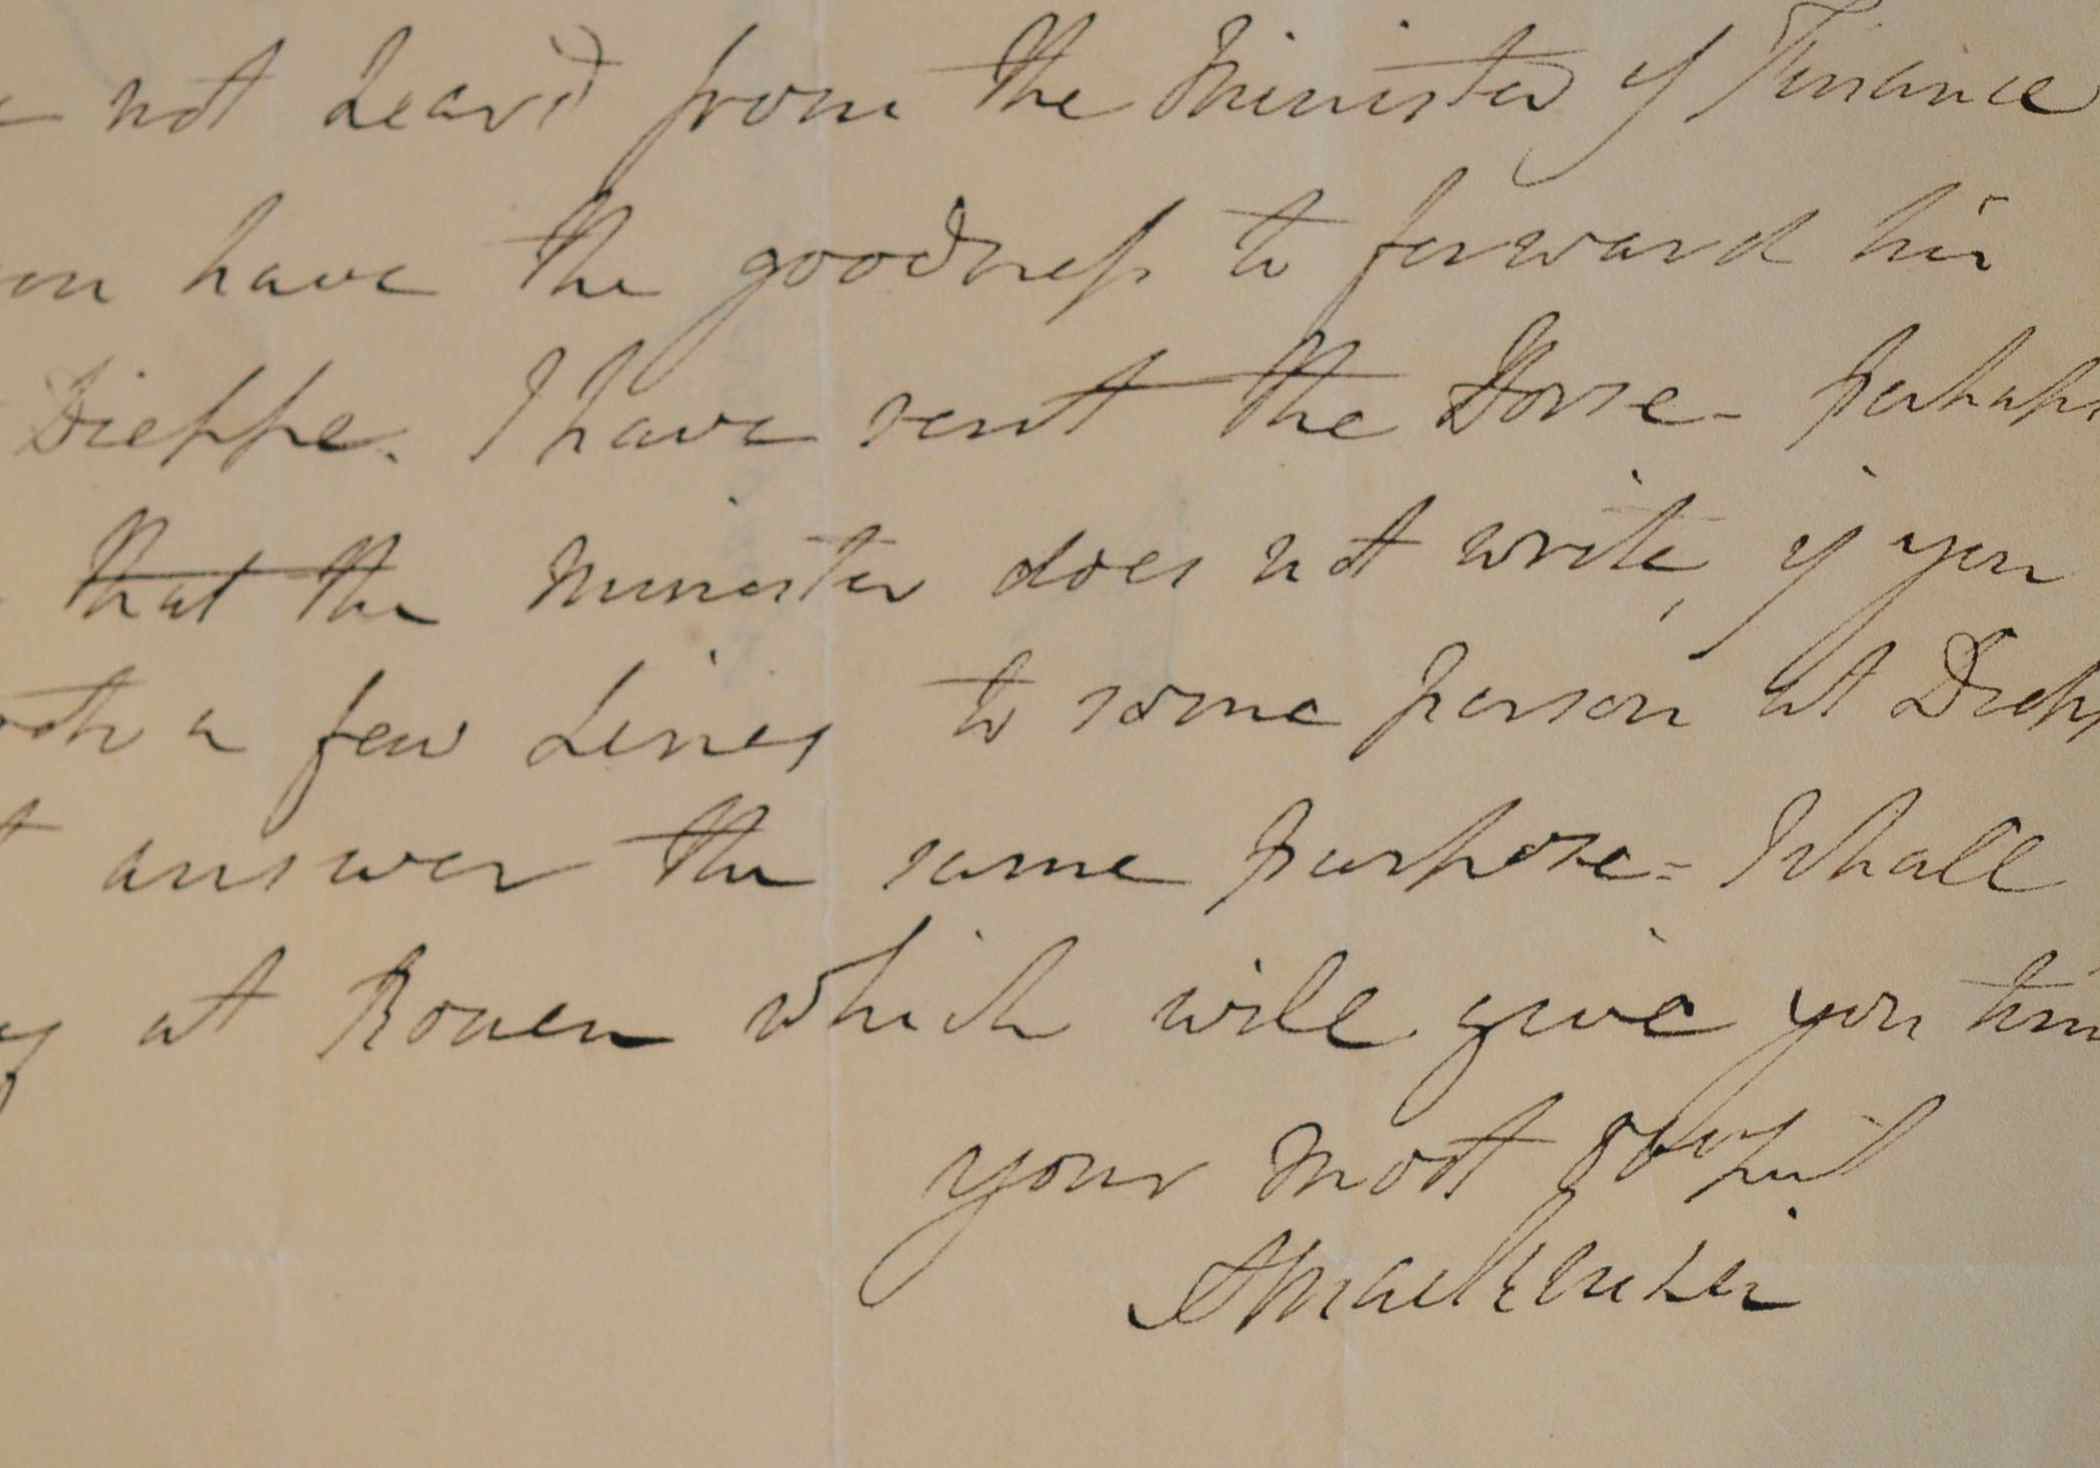 not heard from the Minister of Finance
have the goodness to forward his
Dieppe. I have sent the Horse - perhaps
that the minister does not write, if you
a few Lines to some person at Diepp
answer the same purpose = I shall
at Rouen which will give you tim
your most